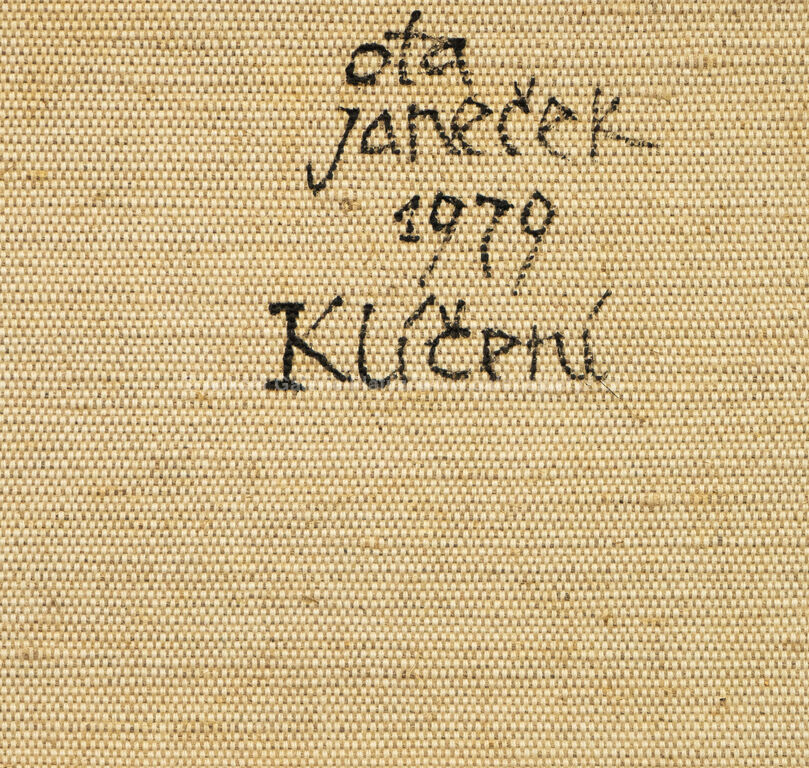 ota
janeček
1979
Klíčení